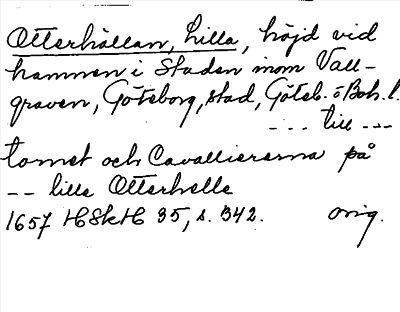 Otterhällan, Lilla, höjd vid
hamnen i Staden inom Vall-
graven, Göteborg, stad, Göteb. o Boh. l.
--- till ---
tornet och Cavalliererna på
-- lille Otterhelle
1657 HSkH 35, s. 342. orig.